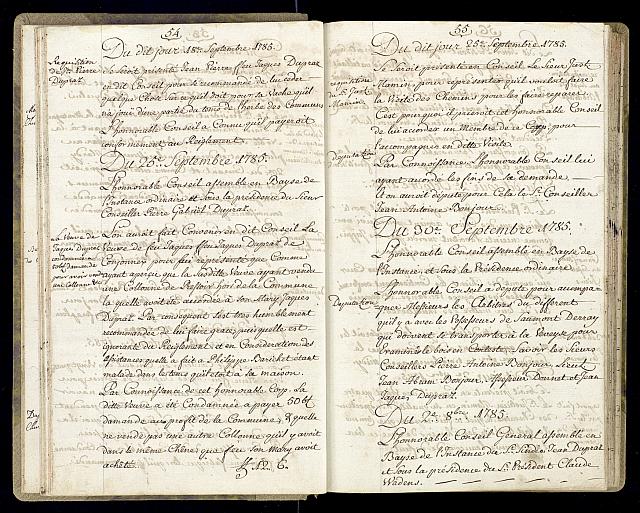 54
Du dit jour 18e Septembre 1785.
Requisition
de Jn Pierre
Duprat
Se Seroit présenté Jean Pierre ffeu Jaques Duprat
en dit Conseil pour se recommandé de lui ceder
quelque Chose sur ce qu'il doit pour sa Vache qu'il
a jouir d'une partie du tems de l'herbe des Communs
l'honnorable Conseil a Connu qu'il payeroit
conformement au Reiglement.
Du 25e Septembre 1785.
L'honnorable Conseil assemblé en Bayse de
l'instance ordinaire et sous la présidence du Sieur
Conseiller Pierre Gabriel Duprat.
La Veuve de
Jaques Duprat
condamnée
L'on auroit fait Convenir en dit Conseil La
Veuve de feu Jaques ffeu Jaques Duprat de
par représenté que Comme
ayant aperçue que la Susditte Veuve ayant vendu
une Collonne de Pressoir hors de la Commune
la quelle avoit été accordée à son Mary Jaques
Duprat. Par Consequent s'est tres humblement
recommandée de lui faire grace, puis quelle est
ignorante du Reiglement et en Consideration des
assistances quelle a fait a Philippe étant
malade dans le tems qu'il étoit à sa maison.
Par Connoissance de cet honnorable Corp. La
ditte Veuve a été Condamnée a payer 50
d'amande au profit de la Commune; & quelle
ne vende pas une autre Collonne qu'il y avoit
dans le même Chêne que feu son Mary avoit
acheté.
55
Du dit jour 25e Septembre 1785.
requisition
Mamin
Se Seroit presenté en Conseil Le Sieur
Mamin, pour représenter qu'il vouloit faire
la Visite des Chemins pour les faire reparer
C'est pourquoi il prieroit cet honnorable Conseil
de lui accorder un Membre de ce Corp: pour
l'accompagner en dette Visite.
Deputation
Par Connoissance L'honnorable Conseil lui
ayant accordé les fins de sa demande.
Il on auroit député pour Cela le Sr. Conseiller
Jean Antoine Bonjour.
Du 30e Septembre 1785.
L'honnorable Conseil assemblé en Bayse de
l'instance, et sous la Présidence ordinaire.
Deputation
L'honnorable Conseil a député pour accompa-
gner Messieurs les Arbitres du different
qu'il y a avec les Possesseurs de Saumont Derray
qui doivent se transporter à la Veveyse pour
examiner le bois en Conteste, Savoir les Sieurs
Conseillers Pierre Antoine Bonjour,
Jean Abram Bonjour, Assesseur et Jean
Jaques Duprat.
Du 2e 8bre 1785.
l'honnorable Conseil Général assemblé en
Bayse de l'instance du Sr. Jean Duprat
et sous la présidence du Sr. President Claude
Wadens.